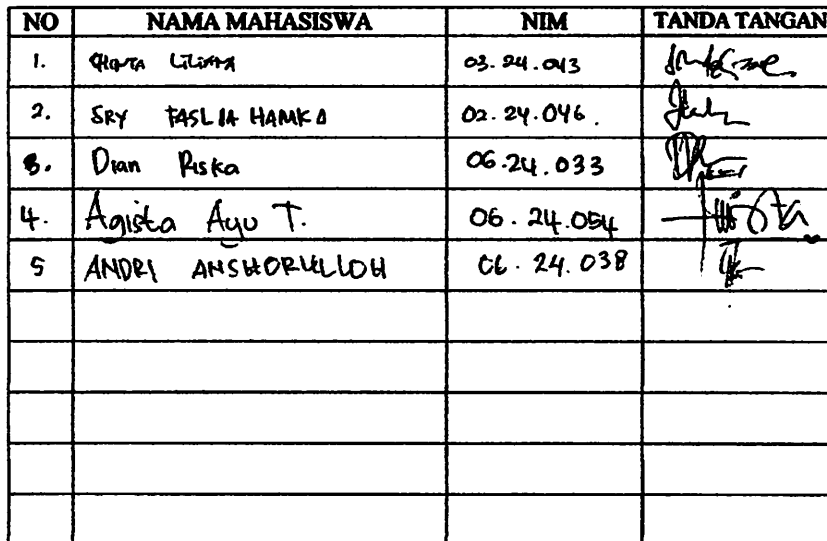 NO NAMA MAHASISWA NIM TANDA TANGAN
1. 03.24.043
2. SRY TASLIA HAMKA 02.24.046.
3. Dian Riska 06.24.033
4. Agista Ayu T. 06.24.054
5 ANDRI ANSHORULLOH 06.24.038